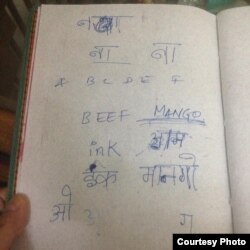 ना ना
A B C D E F
BEEF MANGO
inK आम
इंक मानगो
ओ २ ग
Courtesy Photo